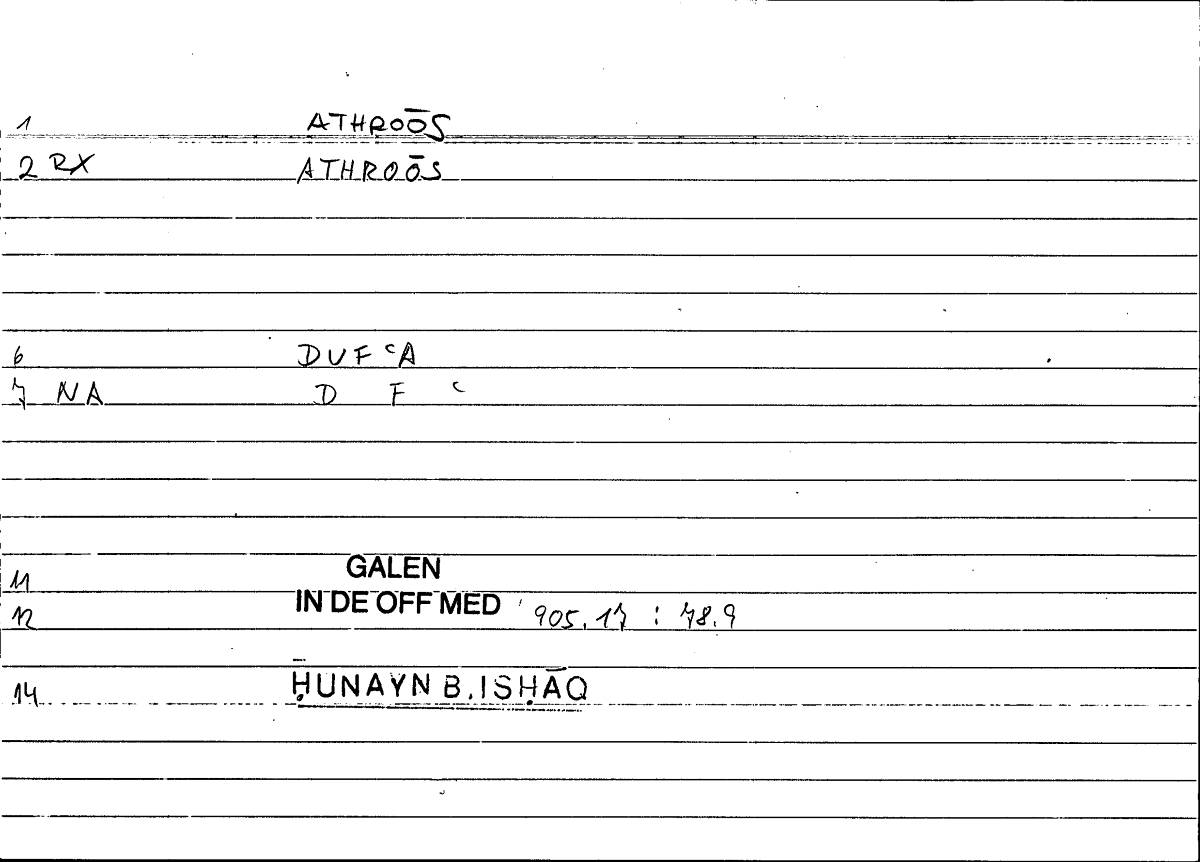 1 ATHROŌS
2 RX ATHROŌS
6 DUFʿA
7 NA D F ʿ
11 GALEN
12 IN DE OFF MED 905.17 : 78.9
14 ḤUNAYN B. ISḤĀQ